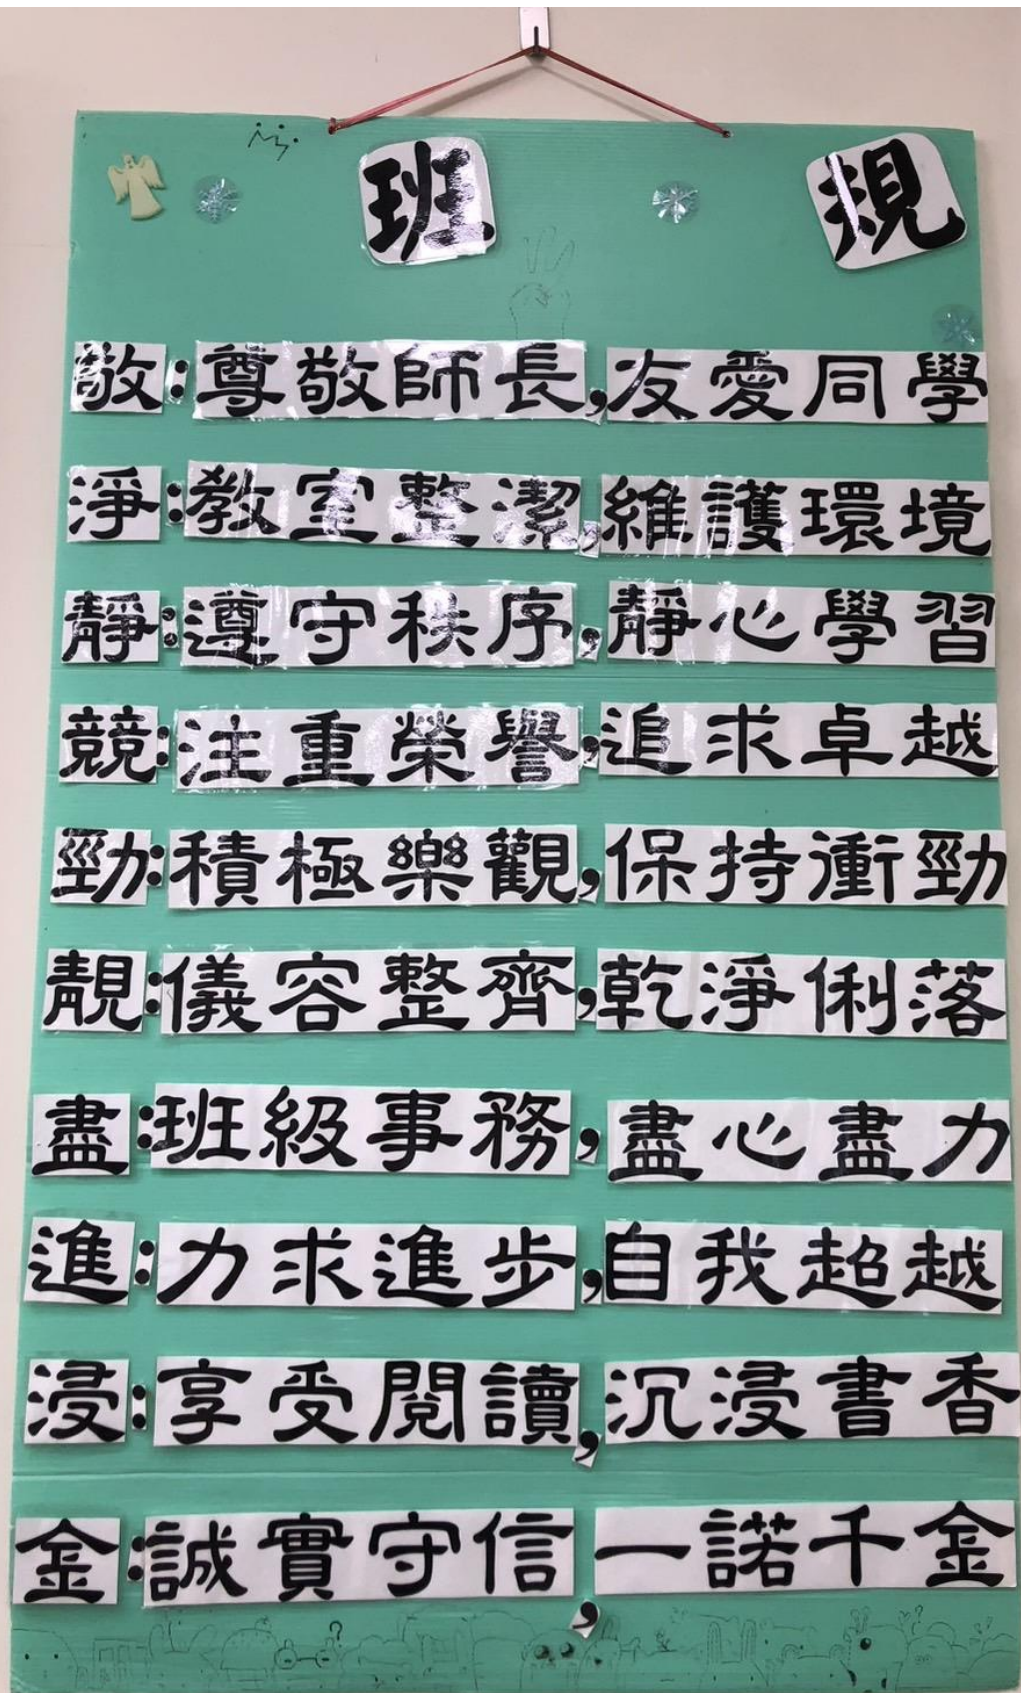 班規
敬:尊敬師長,友愛同學
淨:教室整潔,維護環境
靜:遵守秩序,靜心學習
競:注重榮譽,追求卓越
勁:積極樂觀,保持衝勁
靚:儀容整齊,乾淨俐落
盡:班級事務,盡心盡力
進:力求進步,自我超越
浸:享受閱讀,沉浸書香
金:誠實守信,一諾千金